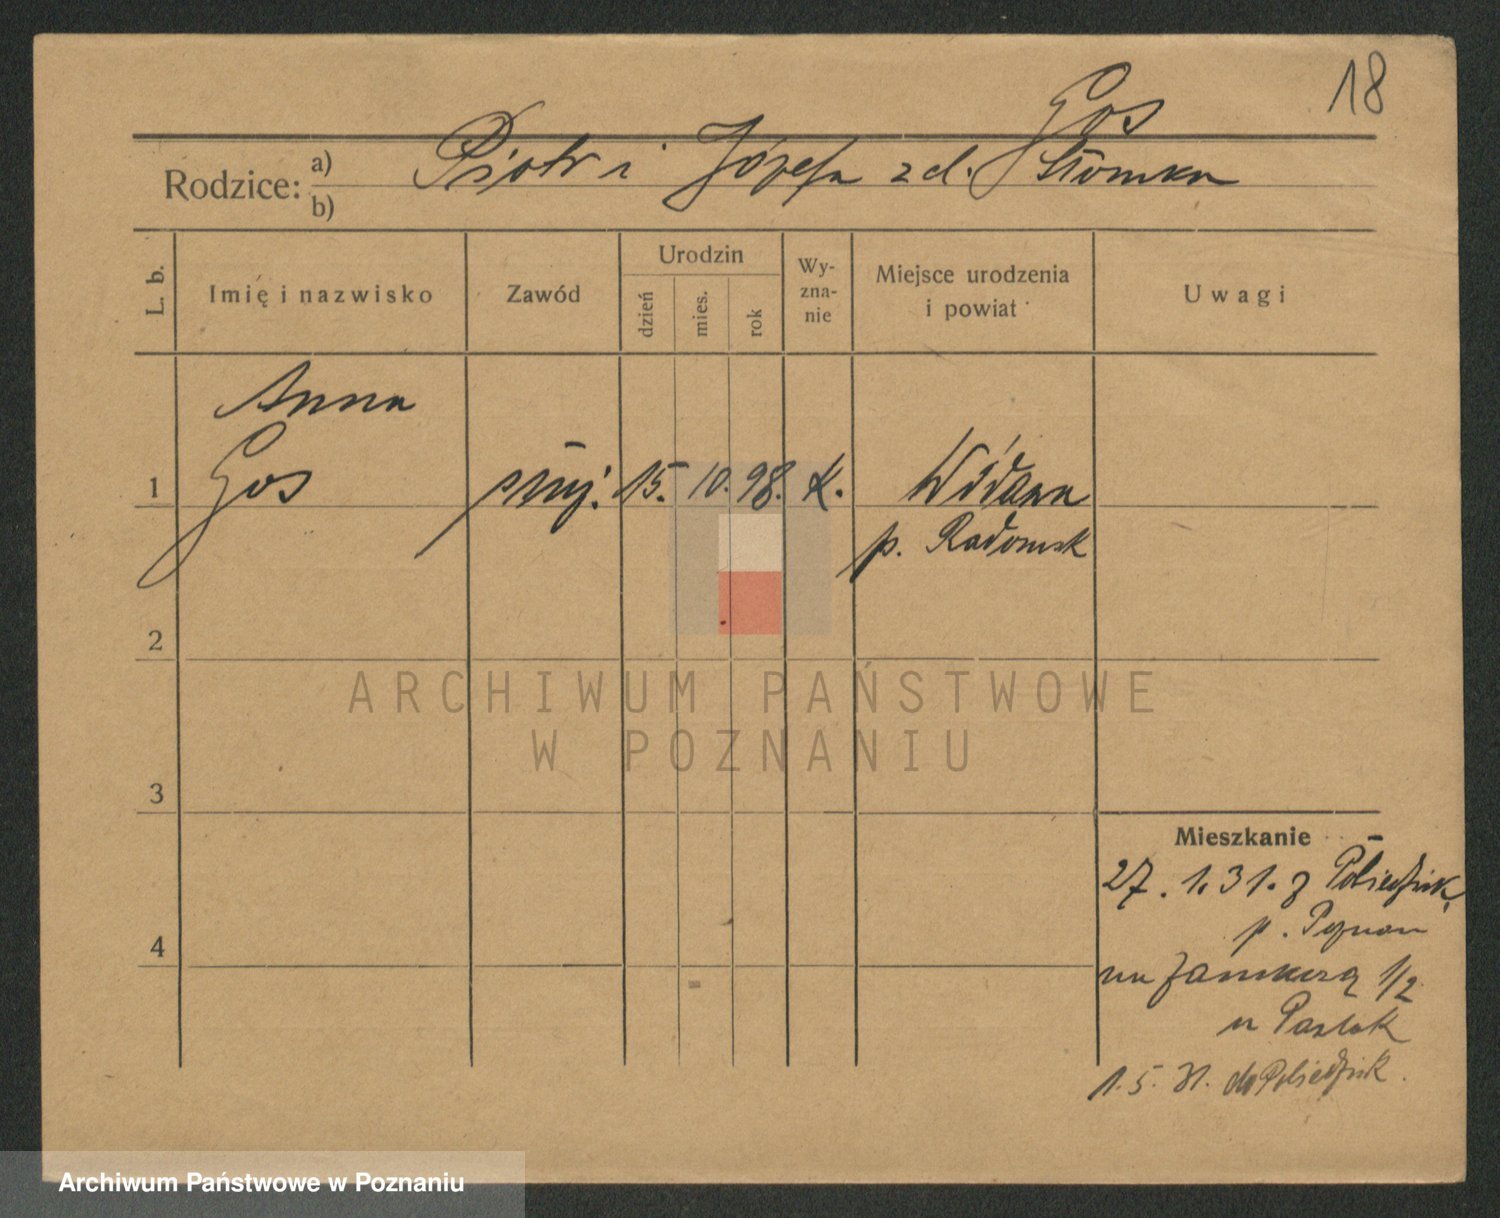 18
Gos
Rodzice: a) Piotr i Józefa z d. Słomka
b)
L. b.
Imię i nazwisko
Zawód
Urodzin
dzień
mies.
rok
Wy-
zna-
nie
Miejsce urodzenia
i powiat
Uwagi
Anna
1 Gos służ. 15. 10. 98. K. Widawa
p. Radomsk
2
ARCHIWUM PAŃSTWOWE
W POZNANIU
3
Mieszkanie
27. 1. 31. z Pobiedzisk
4
p. Poznań
na Zamkową 1/2
u Pazlak
1. 5. 31. do Pobiedzisk.
Archiwum Państwowe w Poznaniu